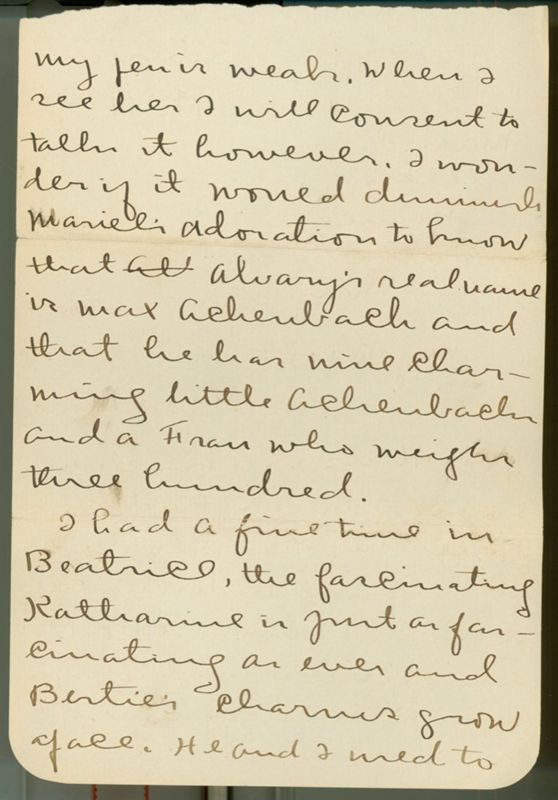 my pen is weak. When I
see her I will consent to
talk it however. I won-
der if it would diminish
Mariel's adoration to know
that Al Alvary's real name
is Max Achenbach and
that he has nine char-
ming little Achenbachs
and a Frau who weighs
three hundred.
I had a fine time in
Beatrice, the fascinating
Katharine is just as fas-
cinating as ever and
Bertie's charms grow
apace. He and I used to